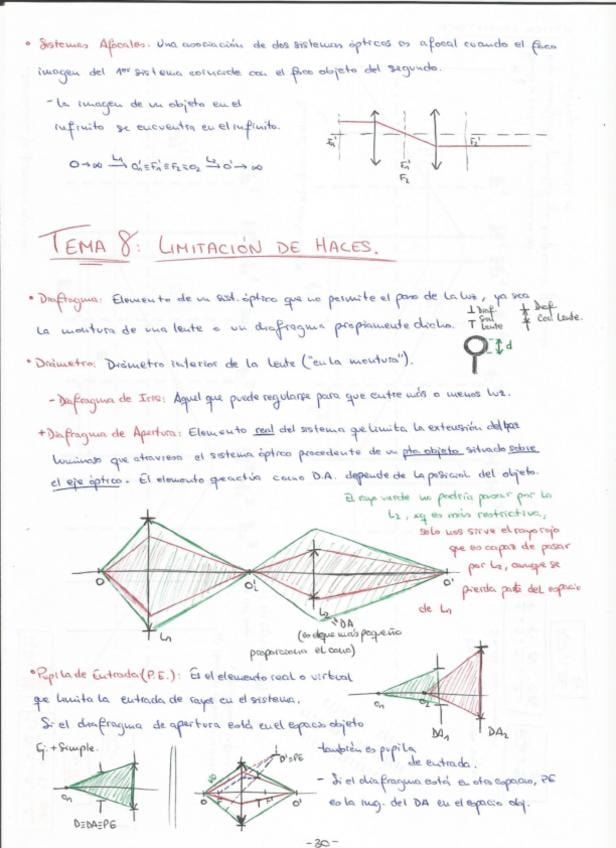 • Sistemas Afocales: Una asociación de dos sistemas ópticos es afocal cuando el foco
imagen del 1er sistema coincide con el foco objeto del segundo.
- La imagen de un objeto en el
infinito se encuentra en el infinito.
O→∞ L1→ O1'≡F1'≡F2≡O2 L2→ O'→∞
F1' F2'
F1'
F2
TEMA 8: LIMITACIÓN DE HACES.
• Diafragma: Elemento de un sist. óptico que no permite el paso de la luz, ya sea
la montura de una lente o un diafragma propiamente dicho.
Diaf. Sin Lente
Diaf. Con Lente.
d
• Diámetro: Diámetro interior de la lente ("en la montura").
- Diafragma de Iris: Aquel que puede regularse para que entre más o menos luz.
+ Diafragma de Apertura: Elemento real del sistema que limita la extensión del haz
luminoso que atraviesa el sistema óptico procedente de un pto objeto situado sobre
el eje óptico. El elemento que actúa como D.A. depende de la posición del objeto.
El rayo verde no podría pasar por la
L2, xq es más restrictiva,
solo nos sirve el rayo rojo
que es capaz de pasar
por L2, aunque se
pierda parte del espacio
de L1
O O1' O'
L1 L2 DA
(es que más pequeño
proporciona el cono)
• Pupila de Entrada (P.E.): Es el elemento real o virtual
que limita la entrada de rayos en el sistema.
O1 O2 DA1 DA2
Si el diafragma de apertura está en el espacio objeto
Ej. + Simple.
- también es pupila
de entrada.
- Si el diafragma está en otro espacio, PE
es la img. del DA en el espacio obj.
O1
D≡DA≡PE
D'≡PE
O O'
-30-